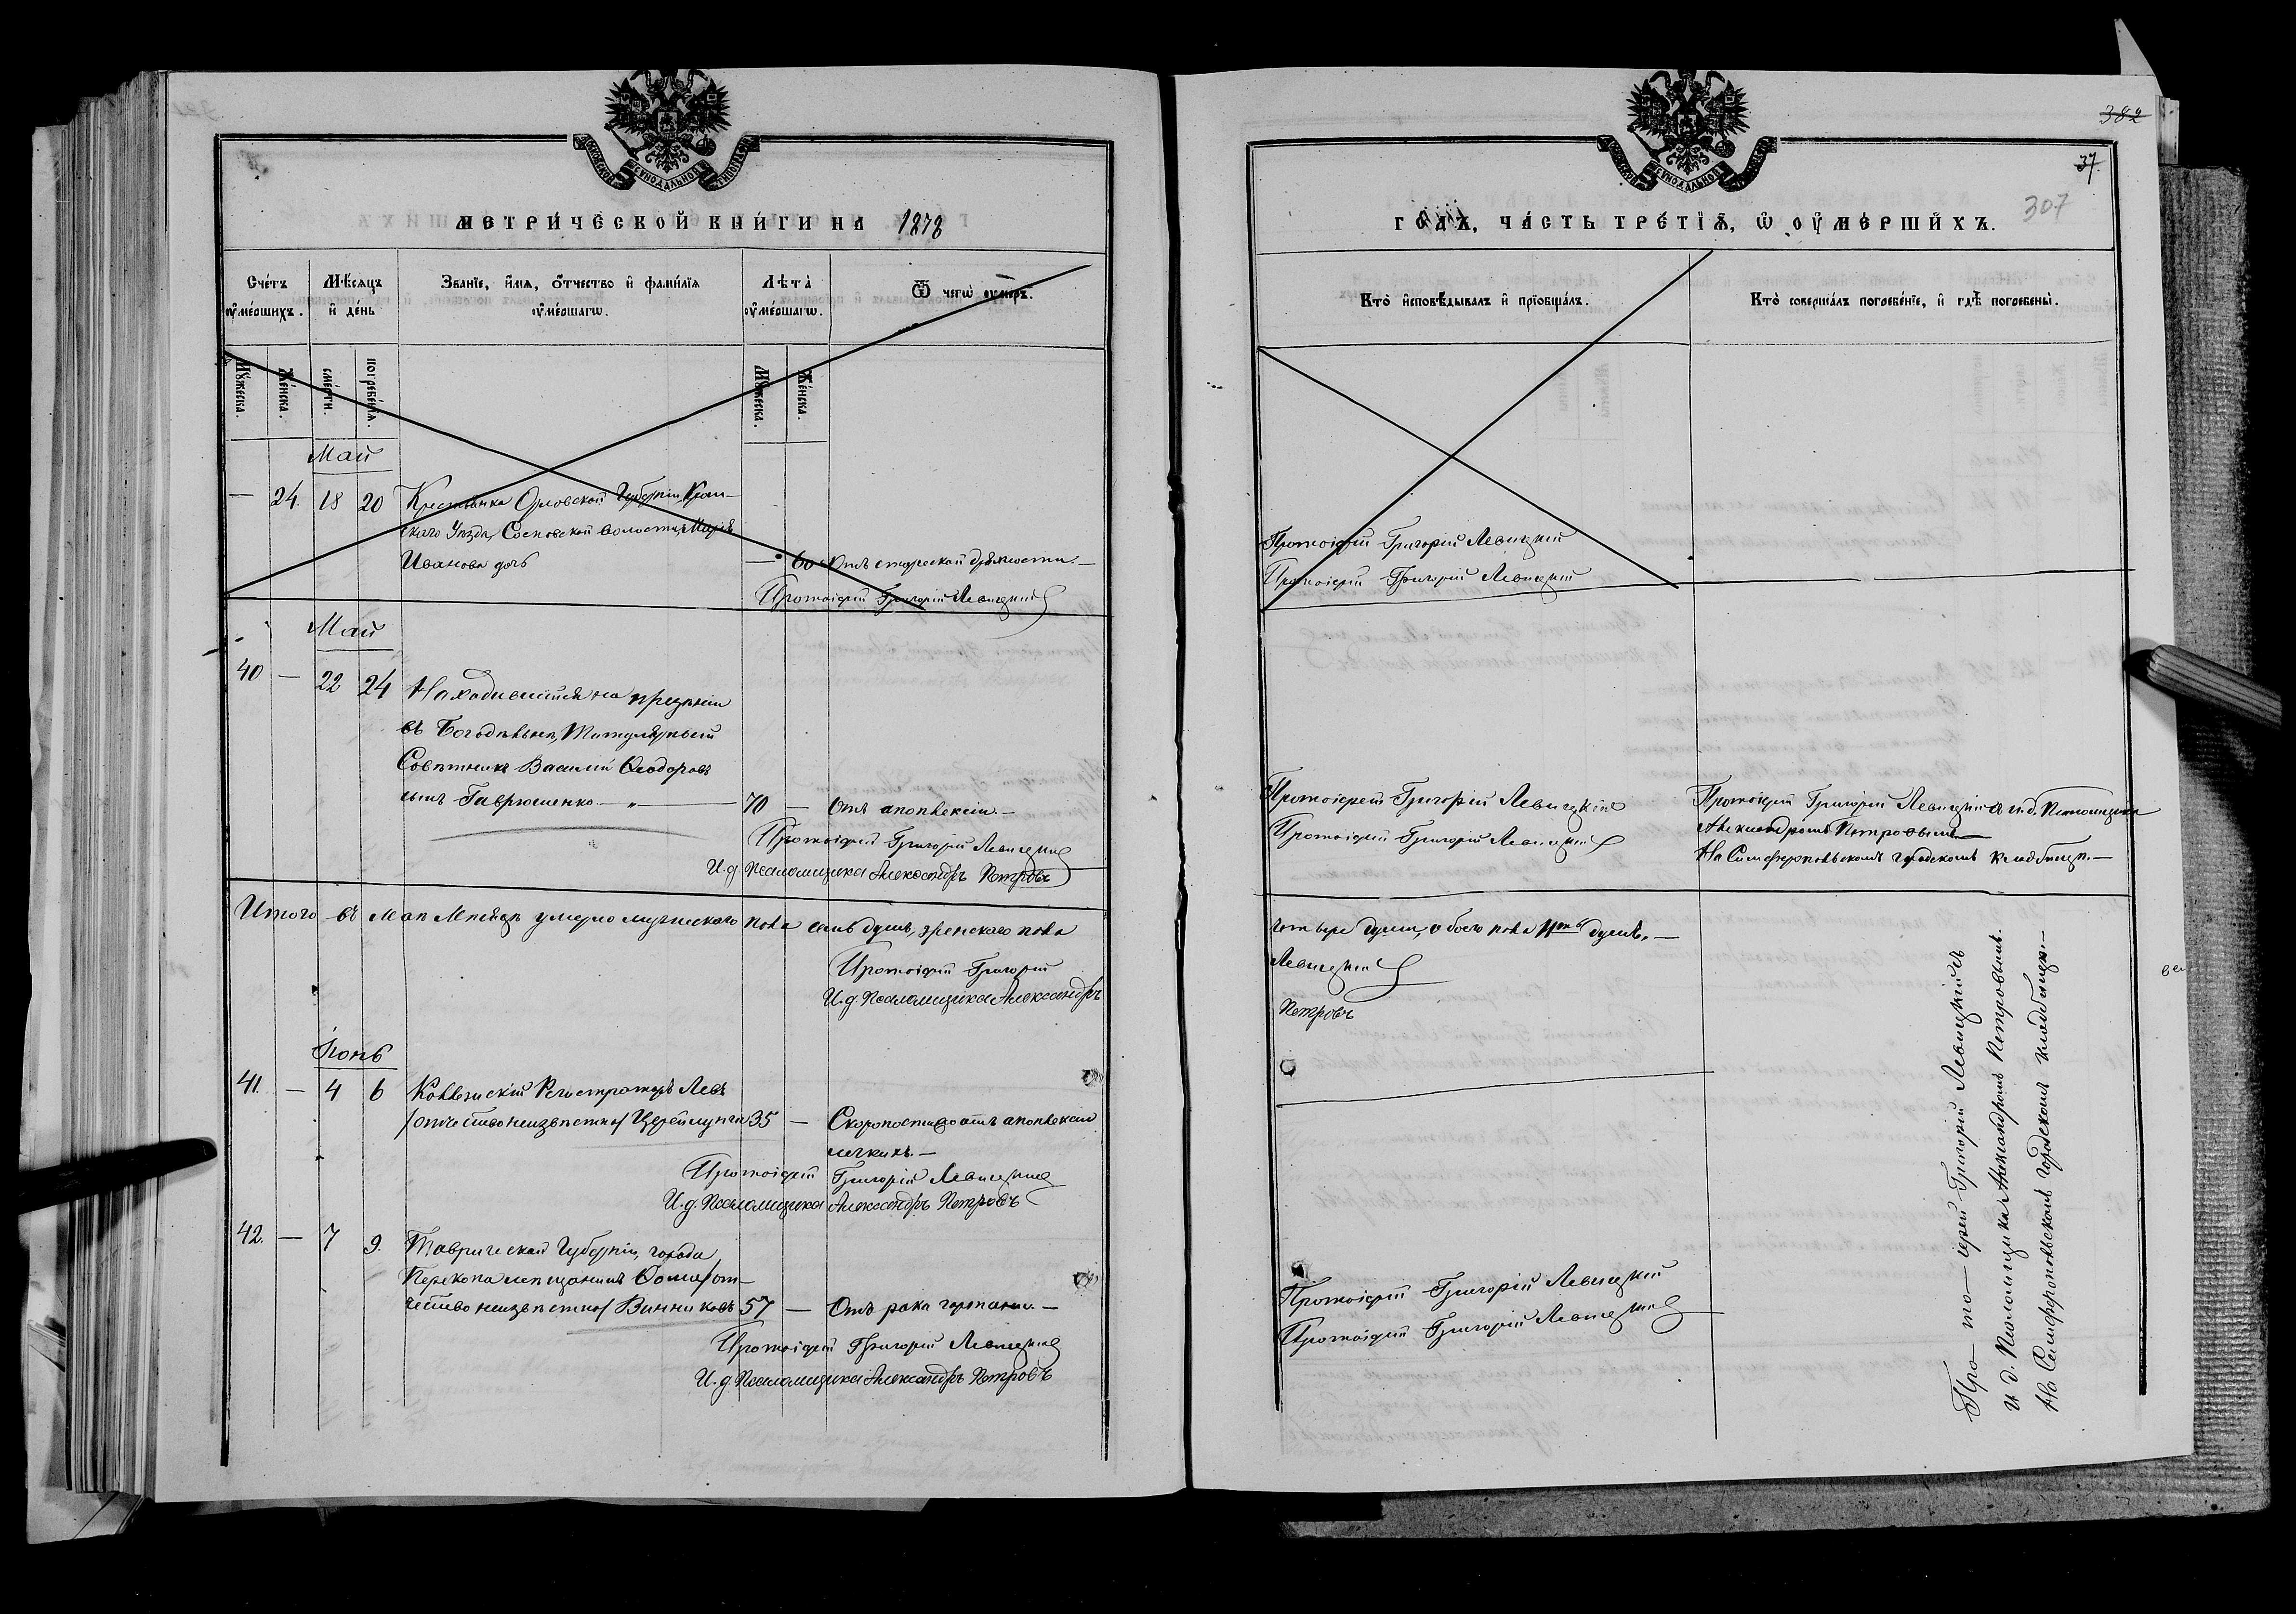 МОСКОВСКОЙ СѴНОДАЛЬНОЙ ТИПОГР.
МЕТРИ́ЧЕСКОЙ КНИ́ГИ НА 1878
Сче́тъ ᲂу҆ме́ршихъ.
Мѣ́сяцъ и҆ де́нь
Зва́ніе, и҆́мя, ѻ҆́тчество и҆ фами́лія ᲂу҆ме́ршагѡ.
Лѣ́та ᲂу҆ме́ршагѡ.
Ѿ чегѡ̀ ᲂу҆́меръ.
Мꙋ́жеска.
Же́нска.
сме́рти.
погребе́нія.
Мꙋ́жеска.
Же́нска.
Май
— 24. 18 20 Крестьянка Орловской Губерніи, Кром-
скаго Уѣзда, Сосковской волости, Марія
Иванова дочь — 60 Отъ старческой дряхлости. —
Протоіерей Григорій Левицкій
Май
40 — 22 24 Находившійся на призрѣніи
въ Богадѣльнѣ, Титулярный
Совѣтникъ Василій Ѳеодоровъ
сынъ Гаврюшенко — „ — 70 — Отъ апоплексіи. —
Протоіерей Григорій Левицкій
И. д. Псаломщика Александръ Петровъ
Итого въ Маѣ Мѣсяцѣ умерло мужескаго пола семь душъ, женскаго пола
Протоіерей Григорій
И. д. Псаломщика Александръ
Іюнь
41. — 4 6 Коллежскій Регистраторъ Левъ
/отчество неизвѣстно/ 35 — Скоропостижно отъ апоплексіи
легкихъ. —
Протоіерей Григорій Левицкій
И. д. Псаломщика Александръ Петровъ
42. — 7 9. Таврической Губерніи, города
Перекопа мѣщанинъ Ѳома /от-
чество неизвѣстно/ Винниковъ 57 — Отъ рака гортани. —
Протоіерей Григорій Левицкій
И. д. Псаломщика Александръ Петровъ
МОСКОВСКОЙ СѴНОДАЛЬНОЙ ТИПОГР.
382
37.
307
ГО́ДЪ, ЧА́СТЬ ТРЕ́ТІЯ, Ѡ҆ ОУ҆МЕ́РШИХЪ.
Кто̀ и҆сповѣ́дывалъ и҆ прїобща́лъ.
Кто̀ соверша́лъ погребе́нїе, и҆ гдѣ̀ погребены̀.
Протоіерей Григорій Левицкій
Протоіерей Григорій Левицкій
Протоіерей Григорій Левицкій
Протоіерей Григорій Левицкій
Протоіерей Григорій Левицкій съ и. д. Псаломщика
Александромъ Петровымъ. —
На Симферопольскомъ городскомъ кладбищѣ. —
четыре души, обоего пола 11ть душъ. —
Левицкій
Петровъ
Протоіерей Григорій Левицкій
Протоіерей Григорій Левицкій
Про- то- іерей Григорій Левицкій съ
и. д. Псаломщика Александромъ Петровымъ.
На Симферопольскомъ городскомъ кладбищѣ. —